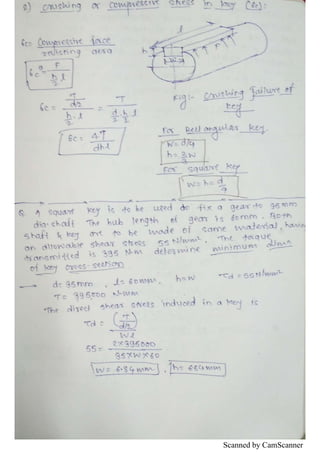 2) crushing or compressive stress in key (6c):
6c = Compressive force
resisting area
l
h
6c = F
h/2 l
6c = T
d/2
h/2 · l
= T
d/2 h/2 l
6c = 4T
dhl
Fig:- Crushing failure of
key
For Rectangular key.
W = d/4
h = 2/3 W
For square key
W = h = d
4
Q. A square key is to be used to fix a gear to 35 mm
dia-shaft The hub length of gear is 60mm. Both
shaft & key are to be made of same material, havin
an allowable shear stress 55 N/mm². The torque
transmitted is 395 N·m determine minimum dims
of key cross-section
→ d = 35mm, l = 60mm, h=W τd = 55N/mm²
T = 395000 N-mm
The direct shear stress induced in a key is
τd = (T
d/2)
Wl
55 = 2×395000
35×W×60
W = 6.84mm, h = 6.84mm
Scanned by CamScanner